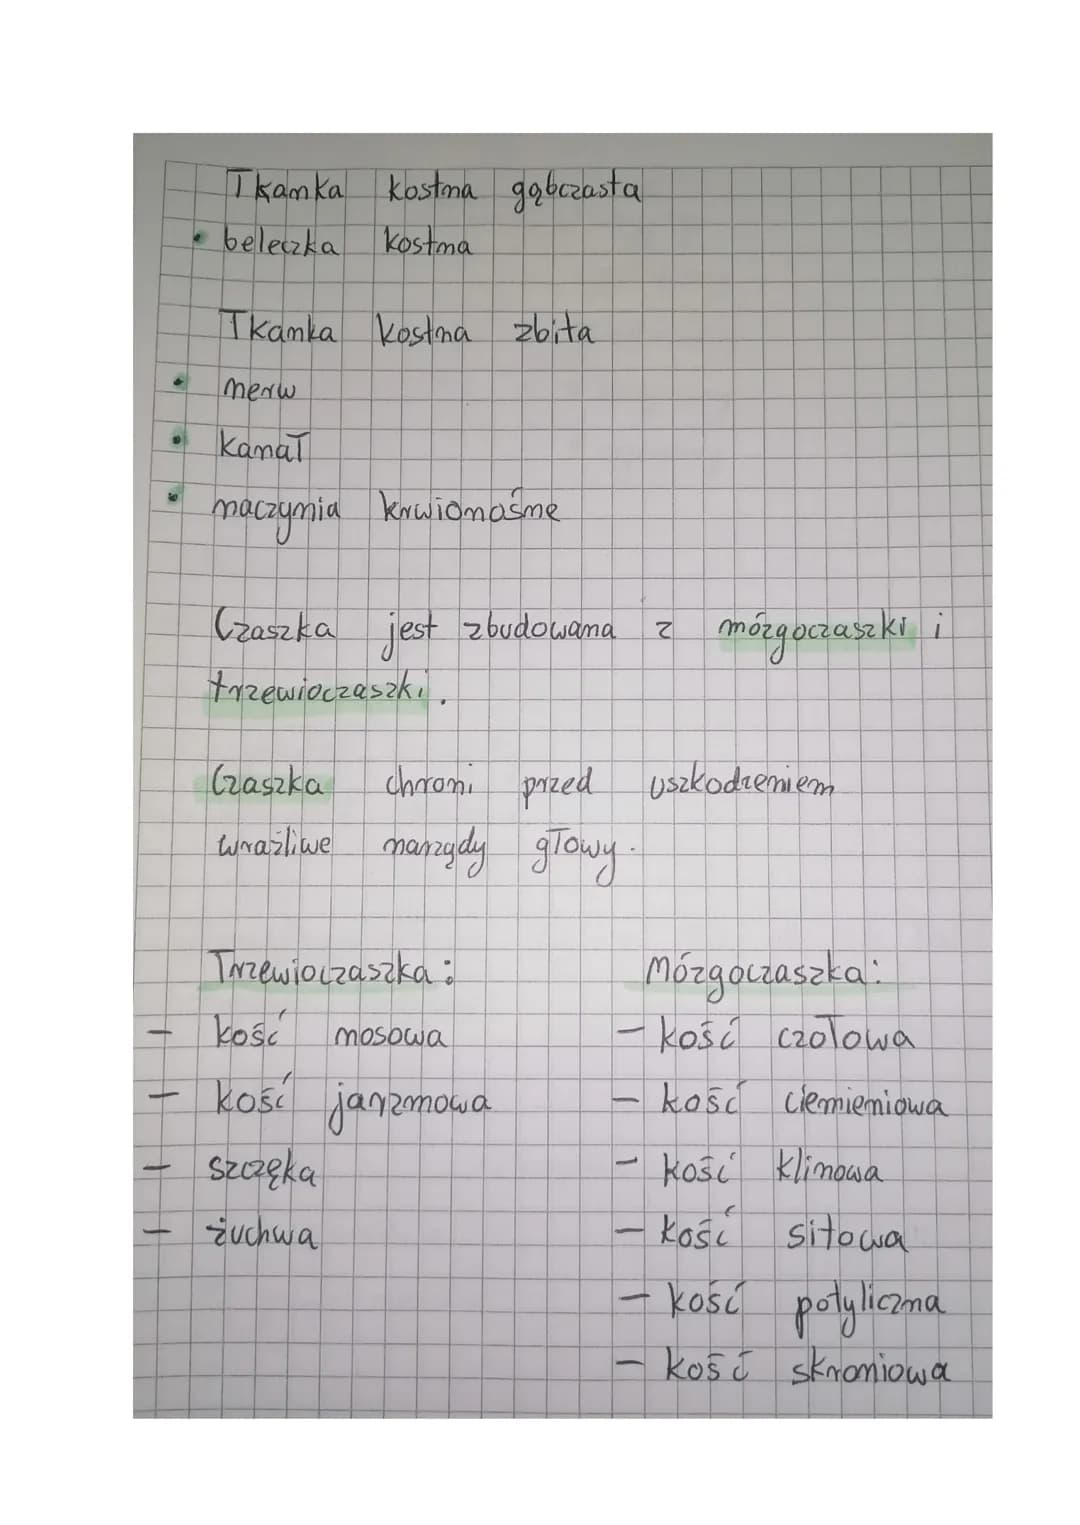 Tkanka kostna gąbczasta
• beleczka kostna
Tkanka kostna zbita
• nerw
• kanał
• naczynia krwionośne
Czaszka jest zbudowana z mózgoczaszki i
trzewioczaszki.
Czaszka chroni przed uszkodzeniem
wrażliwe narządy głowy.
Trzewioczaszka:
- kość nosowa
- kość jarzmowa
- szczęka
- żuchwa
Mózgoczaszka:
- kość czołowa
- kość ciemieniowa
- kość klinowa
- kość sitowa
- kość potyliczna
- kość skroniowa